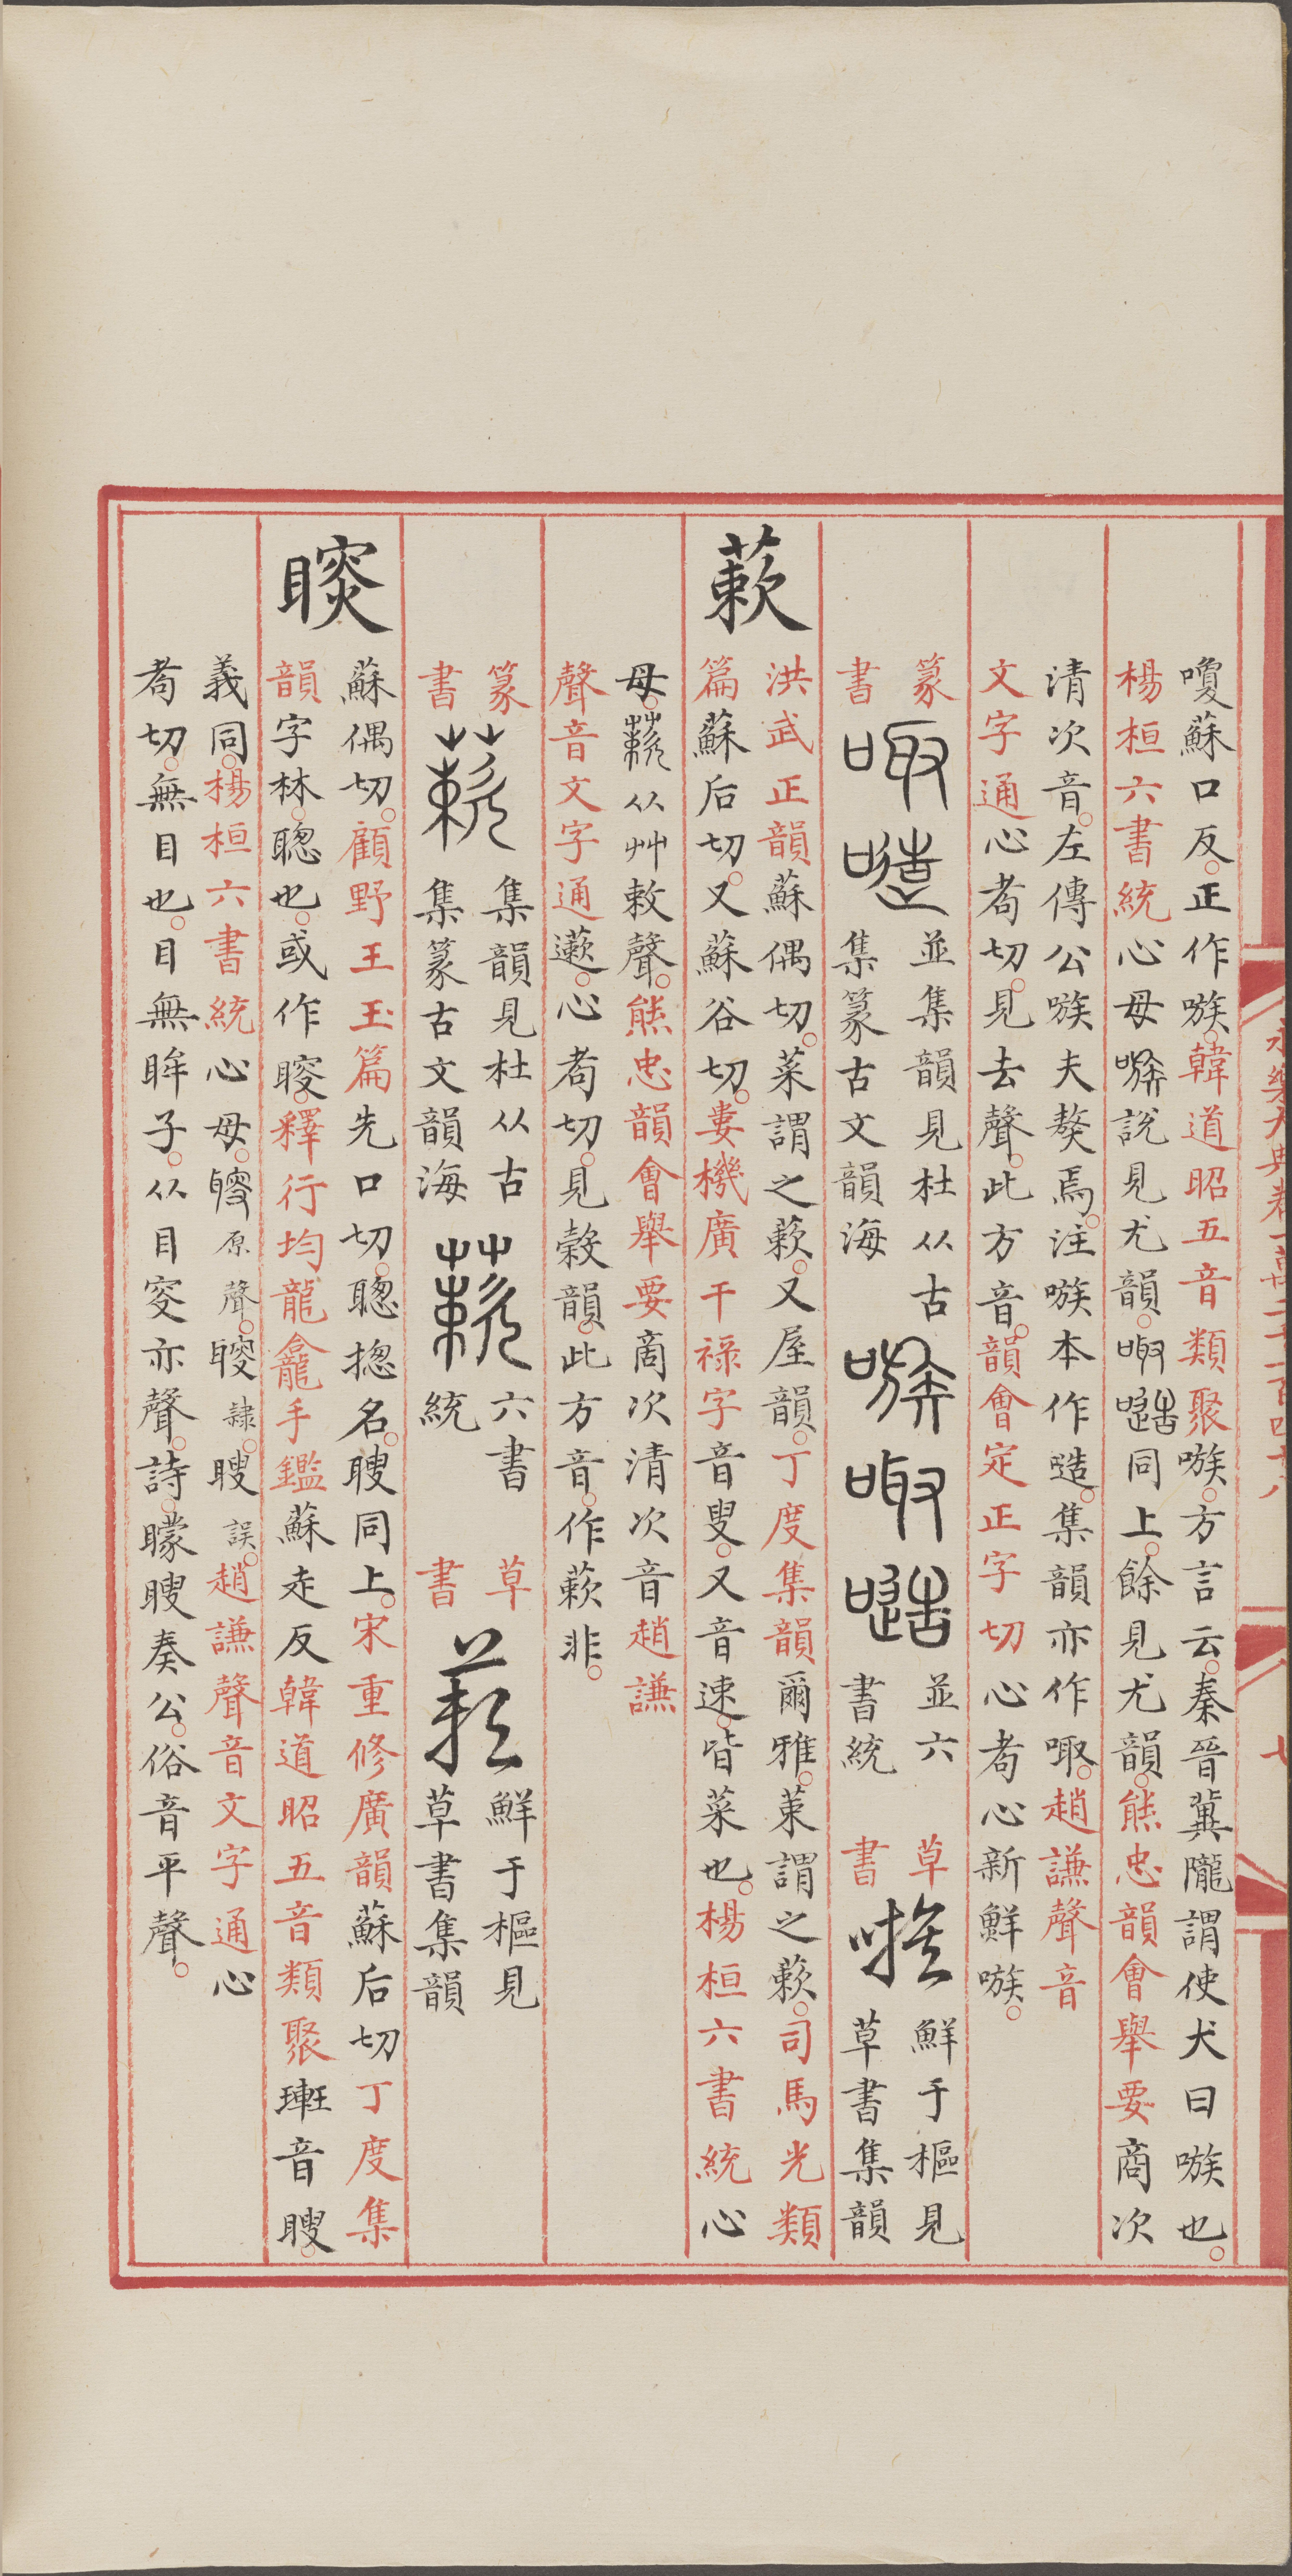 瓊蘇口反。正作嗾。韓道昭五音類聚嗾。方言云。秦晉冀隴謂使犬曰嗾也。
楊桓六書統心母嗾說見尤韻。㖩同上。餘見尤韻。熊忠韻會舉要商次
清次音。左傳公嗾夫獒焉。注嗾本作。集韻亦作㖩。趙謙聲音
文字通心者切。見去聲。此方音。韻會定正字切心者心新鮮嗾。
篆書 並集韻見杜从古集篆古文韻海 並六書統 草書 鮮于樞見草書集韻
蔌
洪武正韻蘇偶切。菜謂之蔌。又屋韻。丁度集韻爾雅。菜謂之蔌。司馬光類
篇蘇后切。又蘇谷切。婁機廣干祿字音叟。又音速。皆菜也。楊桓六書統心
母。从艸敕聲。熊忠韻會舉要商次清次音趙謙
聲音文字通藗。心者切。見榖韻。此方音。作蔌非。
篆書 集韻見杜从古集篆古文韻海 六書統 草書 鮮于樞見草書集韻
䁓
蘇偶切。顧野王玉篇先口切。聰揔名。瞍同上。宋重修廣韻蘇后切丁度集
韻字林。聰也。或作瞍。釋行均龍龕手鑑蘇走反韓道昭五音類聚音瞍。
義同。楊桓六書統心母。原聲。隸。瞍誤。趙謙聲音文字通心
者切。無目也。目無眸子。从目叜亦聲。詩。矇瞍奏公。俗音平聲。
永樂大典卷一萬二千一百四十八
七